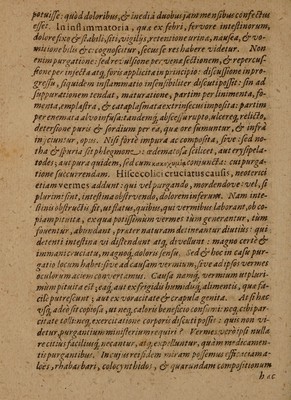 potuisse: quòd doloribus, & inedia duobus jam mensibus confectus
esset. In inflammatoria, quæ ex febri, fervore intestinorum,
dolore fixo & stabili, siti, vigiliis, retentione urina, nausea, & vo-
mitione bilis & c. cognoscitur, secus se res habere videtur. Non
enim purgatione: sed revulsione per venæ sectionem, & repercus-
sione per injecta atq; foris applicita in principio: discussione in pro-
gressu, siquidem inflammatio insensibiliter discuti possit: sin ad
suppurationem tendat, maturatione, partim per linimenta, fo-
menta, emplastra, & cataplasmata extrinsecus imposita: partim
per enemata alvo infusa: tandemq; abscessu rupto, ulcereq; relicto,
detersione puris & sordium per ea, quæ ore sumuntur, & infrà
injiciuntur, opus. Nisi fortè impura ac composita, sive: sed no-
tha & spuria sit phlegmone, œdematosa scilicet, aut erysipela-
todes; aut pura quidem, sed cum conjuncta: cui purga-
tione succurrendum. Hisce colici cruciatus causis, neoterici
etiam vermes addunt: qui vel purgando, mordendove: vel, si
plurimi sint, intestina obstruendo, dolorem inferum. Nam inte-
stinis obstructis fit, ut flatus, quibus, qui vermibus laborant, ob co-
piam pituitæ, ex qua potissimum vermes tùm generantur, tùm
foventur, abundant, præter naturam detineantur diutius: qui
detenti intestina vi distendunt atq; divellunt: magno certè &
immani cruciatu, magnoq; doloris sensu. Sed & hoc in casu pur-
gatio locum habet: sive ad causam vermium, sive ad ipsos vermes
oculorum aciem convertamus. Causa namq; vermium ut pluri-
mùm pituita est; eaq; aut ex frigidis humidisq; alimentis, quæ fa-
cilè putrescunt; aut ex voracitate & crapula genita. At si hæc
usq; adeò sit copiosa, ut neq; caloris beneficio consumi: neq; cibi par-
citate tolli: neq; exercitatione corporis discuti possit: quis non vi-
det, purgantium ministerium requiri? Vermes verò ipsi nulla
re citius faciliusq; necantur, atq; expelluntur, quàm medicamen-
tis purgantibus. In cujus rei fidem
rhabarbari, colocynthidos, & quarundam compositionum
hac